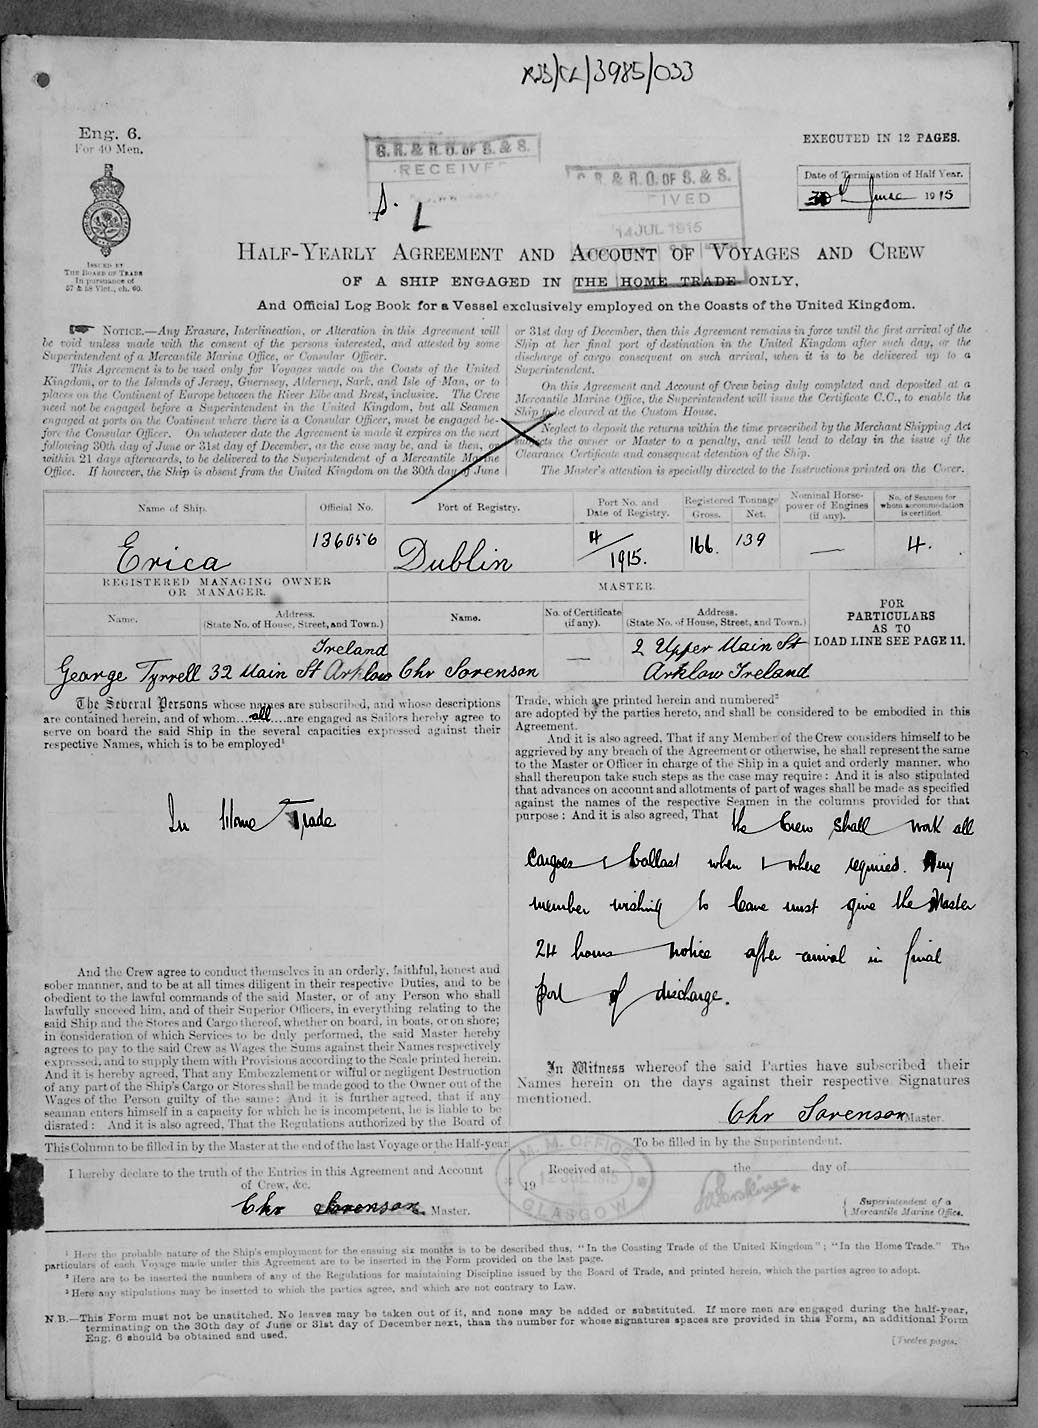 RSS/CL/3985/033
Eng. 6.
For 40 Men.
EXECUTED IN 12 PAGES.
G.R. & R.O. OF S. & S.
RECEIVED
G.R. & R.O. OF S. & S.
14 JUL 1915
Date of Termination of Half Year.
30th June 1915
S.
L
ISSUED BY
THE BOARD OF TRADE
In pursuance of
57 & 58 Vict., ch. 60.
HALF-YEARLY AGREEMENT AND ACCOUNT OF VOYAGES AND CREW
OF A SHIP ENGAGED IN THE HOME TRADE ONLY,
And Official Log Book for a Vessel exclusively employed on the Coasts of the United Kingdom.
NOTICE.—Any Erasure, Interlineation, or Alteration in this Agreement will
be void unless made with the consent of the persons interested, and attested by some
Superintendent of a Mercantile Marine Office, or Consular Officer.
This Agreement is to be used only for Voyages made on the Coasts of the United
Kingdom, or to the Islands of Jersey, Guernsey, Alderney, Sark, and Isle of Man, or to
places on the Continent of Europe between the River Elbe and Brest, inclusive. The Crew
need not be engaged before a Superintendent in the United Kingdom, but all Seamen
engaged at ports on the Continent where there is a Consular Officer, must be engaged be-
fore the Consular Officer. On whatever date the Agreement is made it expires on the next
following 30th day of June or 31st day of December, as the case may be, and is then, or
within 21 days afterwards, to be delivered to the Superintendent of a Mercantile Marine
Office. If however, the Ship is absent from the United Kingdom on the 30th day of June
or 31st day of December, then this Agreement remains in force until the first arrival of the
Ship at her final port of destination in the United Kingdom after such day, or the
discharge of cargo consequent on such arrival, when it is to be delivered up to a
Superintendent.
On this Agreement and Account of Crew being duly completed and deposited at a
Mercantile Marine Office, the Superintendent will issue the Certificate C.C., to enable the
Ship to be cleared at the Custom House.
Neglect to deposit the returns within the time prescribed by the Merchant Shipping Act
subjects the owner or Master to a penalty, and will lead to delay in the issue of the
Clearance Certificate and consequent detention of the Ship.
The Master's attention is specially directed to the Instructions printed on the Cover.
Name of Ship.
Official No.
Port of Registry.
Port No. and
Date of Registry.
Registered Tonnage
Gross.
Net.
Nominal Horse-
power of Engines
(if any).
No. of Seamen for
whom accommodation
is certified.
Erica
136056
Dublin
4/1915.
166.
139
—
4.
REGISTERED MANAGING OWNER
OR MANAGER.
MASTER.
Name.
Address.
(State No. of House, Street, and Town.)
Name.
No. of Certificate
(if any).
Address.
(State No. of House, Street, and Town.)
FOR
PARTICULARS
AS TO
LOAD LINE SEE PAGE 11.
George Tyrrell
32 Main St Arklow
Ireland
Chr Sorenson
—
2 Upper Main St
Arklow Ireland
The Several Persons whose names are subscribed, and whose descriptions
are contained herein, and of whom... all ...are engaged as Sailors hereby agree to
serve on board the said Ship in the several capacities expressed against their
respective Names, which is to be employed¹
In Home Trade
And the Crew agree to conduct themselves in an orderly, faithful, honest and
sober manner, and to be at all times diligent in their respective Duties, and to be
obedient to the lawful commands of the said Master, or of any Person who shall
lawfully succeed him, and of their Superior Officers, in everything relating to the
said Ship and the Stores and Cargo thereof, whether on board, in boats, or on shore;
in consideration of which Services to be duly performed, the said Master hereby
agrees to pay to the said Crew as Wages the Sums against their Names respectively
expressed, and to supply them with Provisions according to the Scale printed herein.
And it is hereby agreed, That any Embezzlement or wilful or negligent Destruction
of any part of the Ship's Cargo or Stores shall be made good to the Owner out of the
Wages of the Person guilty of the same: And it is further agreed, that if any
seaman enters himself in a capacity for which he is incompetent, he is liable to be
disrated: And it is also agreed, That the Regulations authorized by the Board of
Trade, which are printed herein and numbered²
are adopted by the parties hereto, and shall be considered to be embodied in this
Agreement.
And it is also agreed, That if any Member of the Crew considers himself to be
aggrieved by any breach of the Agreement or otherwise, he shall represent the same
to the Master or Officer in charge of the Ship in a quiet and orderly manner, who
shall thereupon take such steps as the case may require: And it is also stipulated
that advances on account and allotments of part of wages shall be made as specified
against the names of the respective Seamen in the columns provided for that
purpose: And it is also agreed, That the Crew shall work all
Cargoes & ballast when & where required. Any
member wishing to leave must give the Master
24 hours notice after arrival in final
Port of discharge.
In Witness whereof the said Parties have subscribed their
Names herein on the days against their respective Signatures
mentioned.
Chr Sorenson Master.
This Column to be filled in by the Master at the end of the last Voyage or the Half-year.
To be filled in by the Superintendent.
I hereby declare to the truth of the Entries in this Agreement and Account
of Crew, &c.
Chr Sorenson Master.
Received at
the
day of
19
M. M. OFFICE
12 JUL 1915
GLASGOW
Superintendent of a
Mercantile Marine Office.
¹ Here the probable nature of the Ship's employment for the ensuing six months is to be described thus, "In the Coasting Trade of the United Kingdom"; "In the Home Trade." The
particulars of each Voyage made under this Agreement are to be inserted in the Form provided on the last page.
² Here are to be inserted the numbers of any of the Regulations for maintaining Discipline issued by the Board of Trade, and printed herein, which the parties agree to adopt.
³ Here any stipulations may be inserted to which the parties agree, and which are not contrary to Law.
N.B.—This Form must not be unstitched. No leaves may be taken out of it, and none may be added or substituted. If more men are engaged during the half-year,
terminating on the 30th day of June or 31st day of December next, than the number for whose signatures spaces are provided in this Form, an additional Form
Eng. 6 should be obtained and used.
[Twelve pages.